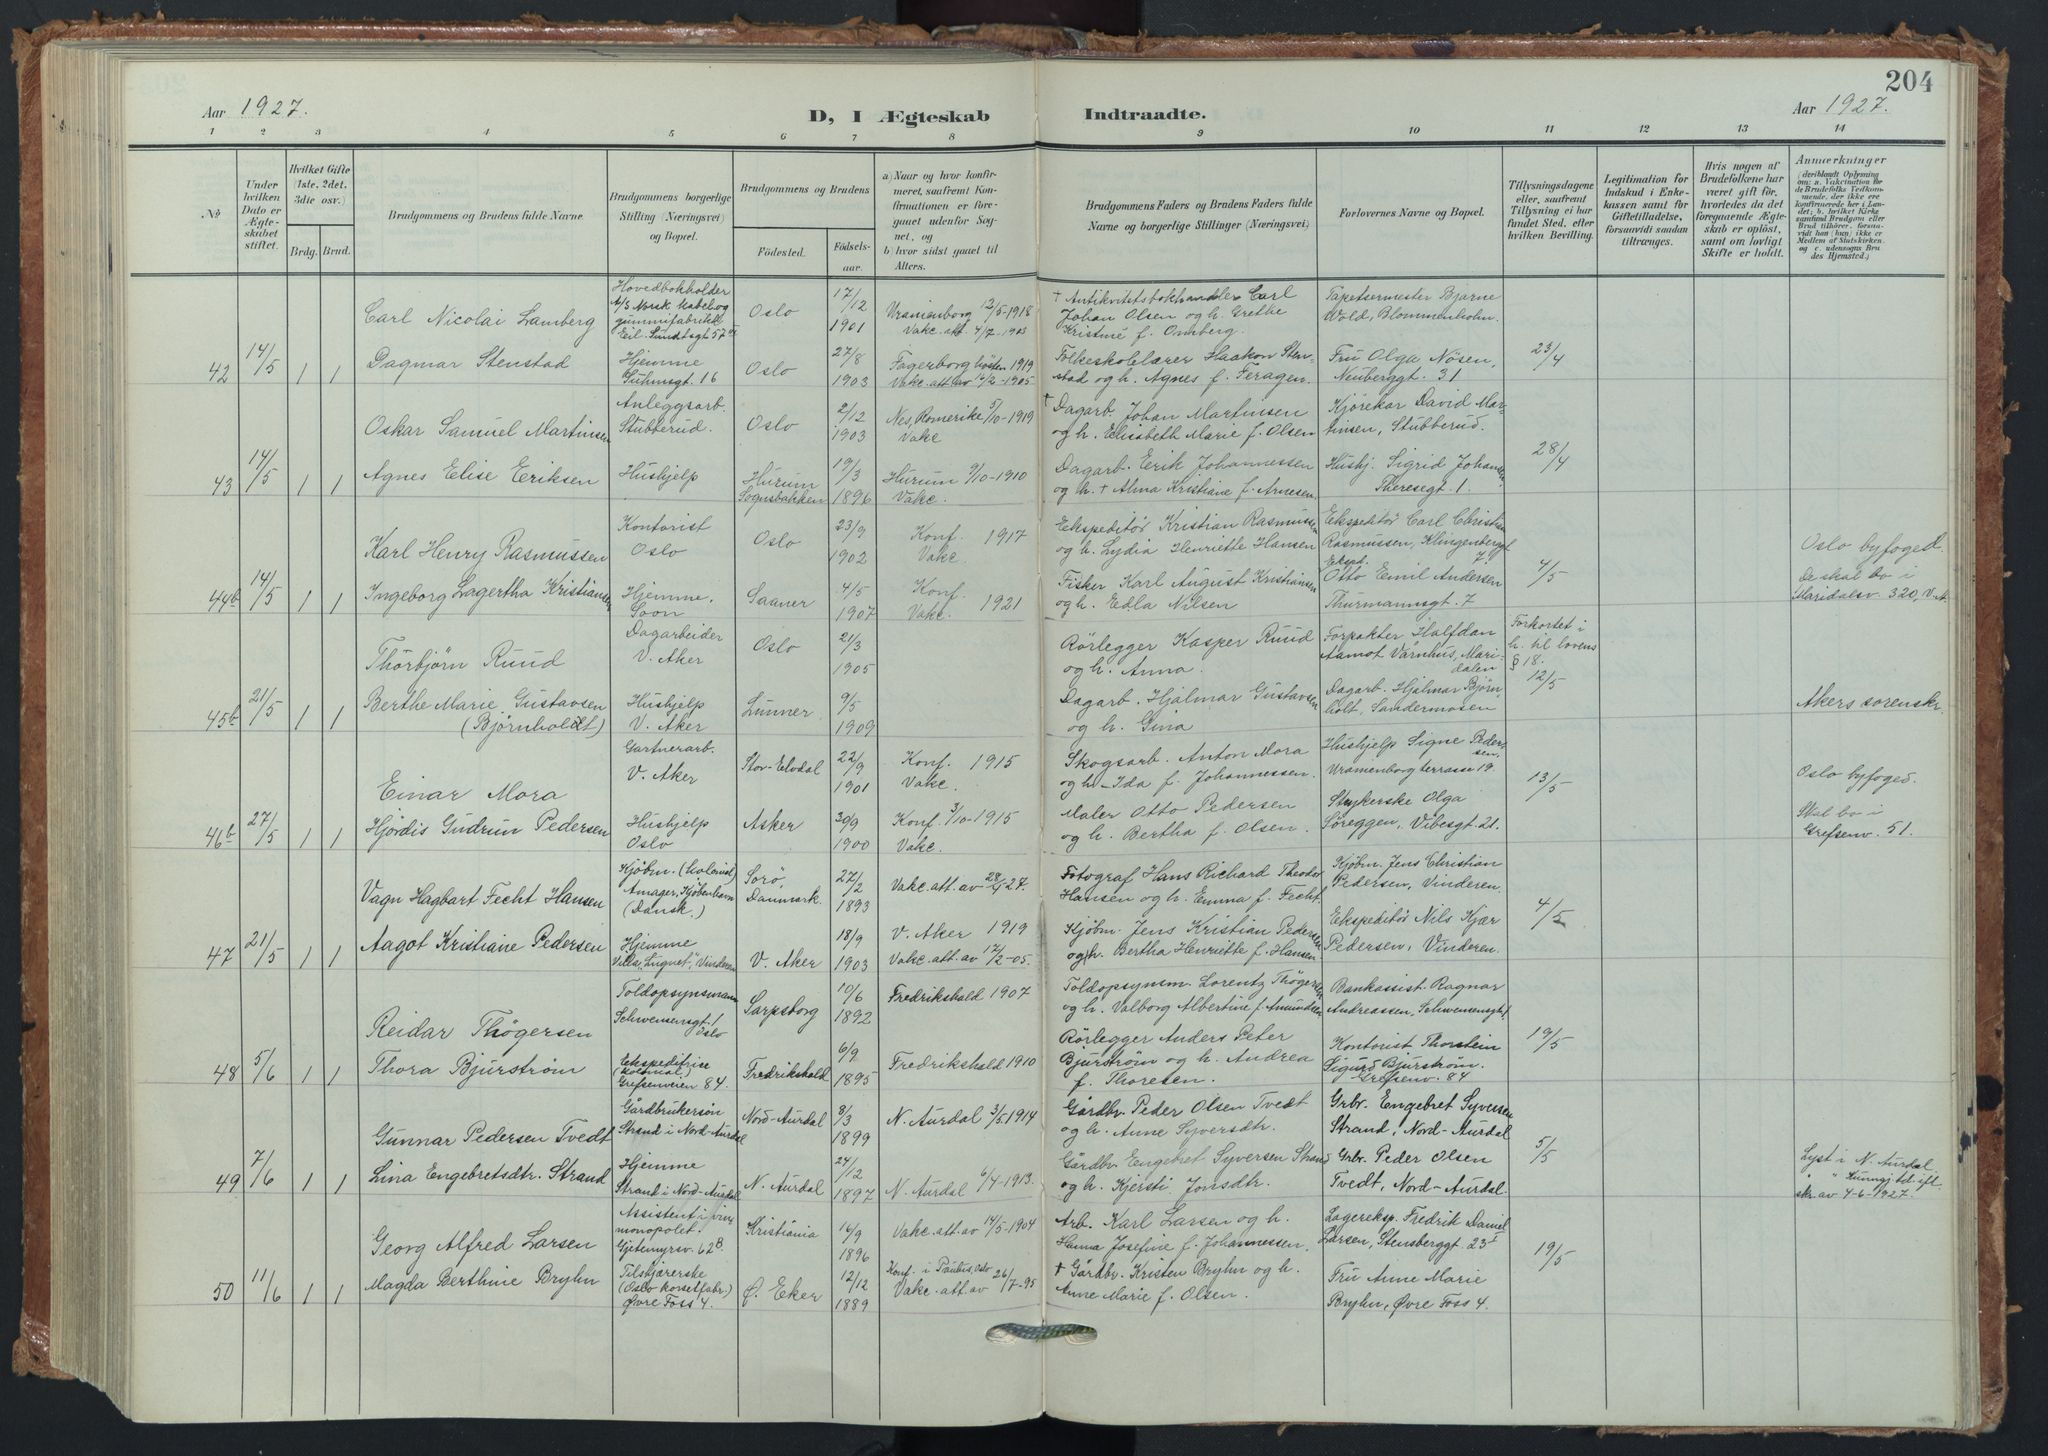 204
Aar 1927.
D, I Ægteskab Indtraadte.
Aar 1927.
1 2 3 4 5 6 7 8 9 10 11 12 13 14
№
Under hvilken Dato er Ægteskabet stiftet.
Hvilket Gifte (1ste, 2det, 3die osv.)
Brdg. Brud.
Brudgommens og Brudens fulde Navne.
Brudgommens borgerlige Stilling (Næringsvei) og Bopæl.
Brudgommens og Brudens
Fødested.
Fødselsaar.
a) Naar og hvor konfirmeret, saafremt Konfirmationen er foregaaet udenfor Sognet, og
b) hvor sidst gaaet til Alters.
Brudgommens Faders og Brudens Faders fulde Navne og borgerlige Stillinger (Næringsvei)
Forlovernes Navne og Bopæl.
Tillysningsdagene eller, saafremt Tillysning ei har fundet Sted, efter hvilken Bevilling.
Legitimation for Indskud i Enkekassen samt for Giftetilladelse, forsaavidt saadan tiltrænges.
Hvis nogen af Brudefolkene har været gift før, hvorledes da det foregaaende Ægteskab er opløst, samt om lovligt Skifte er holdt.
Anmerkninger
42 14/5 1 1
Carl Nicolai Lamberg
Hovedbokholder
A/S Norsk Kabel og
gummifabrikk
Eil. Sundtsgt 57
Oslo
17/12 1901
Uranienborg 12/5-1918
Vakc. att. 4/2-1903
† Antikvitetsbokhandler Carl
Johan Olsen og h. Grethe
Kristine f. Omberg.
Tapetsermester Bjarne
Wold, Blommenholm.
Dagmar Stenstad
Hjemme
Suhmsgt. 16
Oslo
27/8 1903
Fagerborg høsten 1919
Vakc. att. av 16/2-1905
Folkeskolelærer Haakon Sten-
stad og h. Agnes f. Feragen.
Fru Olga Nösen,
Neuberggt. 31
23/4
43 14/5 1 1
Oskar Samuel Martinsen
Anleggsarb.
Stubberud.
Oslo
2/12 1903
Nes, Romerike 5/10-1919
Vakc
† Dagarb. Johan Martinsen
og h. Elisabeth Marie f. Olsen
Kjørekar David Mar-
tinsen, Stubberud.
Agnes Elise Eriksen
Hushjelp
Hurum
Sognsbakken
19/3 1896
Hurum 9/10-1910
Vakc.
Dagarb. Erik Johannessen
og h. † Alma Kristiane f. Arnesen.
Hushj. Sigrid Johansen
Theresegt. 1.
28/4
44b 14/5 1 1
Karl Henry Rasmussen
Kontorist
Oslo
Oslo
23/9 1902
Konf. 1917
Vakc.
Ekspeditör Kristian Rasmussen
og h. Lydia Henriette Hansen
Ekspeditör Carl Christian
Rasmussen, Klingenberggt
7.
Oslo byfoged.
Ingeborg Lagertha Kristiansen
Hjemme.
Soon
Saaner
4/5 1907
Konf. 1921
Vakc.
Fisker Karl August Kristiansen
og h. Edla Nilsen
Eksped.
Otto Emil Andersen
Thurmannsgt. 7
4/5
De skal bo i
Maridalsv. 320, V.A.
45b 21/5 1 1
Thorbjörn Ruud
Dagarbeider
V. Aker
Oslo
21/3 1905
Rörlegger Kasper Ruud
og h. Anna.
Forpakter Halfdan
Aamot Vårnhus, Mari-
dalen
Forkortet i
h. til lovens
§ 18.
Berthe Marie Gustavsen
(Bjørnholdt)
Hushjelp
V. Aker
Lunner
9/5 1909
Dagarb. Hjalmar Gustavsen
og h. Gina
Dagarb. Hjalmar Björn-
holt, Sandermosen
12/5
Akers sorenskr.
46b 27/5 1 1
Einar Mora
Gartnerarb.
V. Aker
Stor-Elvdal
22/9 1901
Konf. 1915
Vakc.
Skogsarb. Anton Mora
og h. Ida f. Johannessen.
Hushjelp Signe Peder-
sen,
Uranienborgterrasse 19.
13/5
Oslo byfoged.
Hjördis Gudrun Pedersen
Hushjelp
Oslo
Asker
30/9 1900
Konf. 3/10-1915
Vakc.
Maler Otto Pedersen
og h. Bertha f. Olsen.
Strykerske Olga
Söreggen, Vibesgt. 21.
Skal bo i
Grefsenv. 51.
47 21/5 1 1
Vagn Hagbart Fecht Hansen
Kjøbm. (Kolonial)
Amager, Kjøbenhavn
(Dansk.)
Sorö,
Danmark.
27/2 1893
Vakc. att. av 28/4 27.
Fotograf Hans Richard Theodor
Hansen og h. Emma f. Fecht.
Kjøbm. Jens Christian
Pedersen, Vinderen.
Aagot Kristiane Pedersen
Hjemme
Villa "Lugnet", Vinderen
V. Aker
18/9 1903
V. Aker 1919
Vakc. att. av 17/2-05.
Kjøbm. Jens Kristian Pedersen
og h. Bertha Henriette f. Hansen
Ekspeditör Nils Kjær
Pedersen, Vinderen.
4/5
48 5/6 1 1
Reidar Thögersen
Toldopsynsmann
Schwensensgt. 1
Oslo
Sarpsborg
10/6 1892
Fredrikshald 1907
Toldopsynsm. Lorentz Thögersen
og h. Valborg Albertine f. Amundsen
Bankassist. Ragnar
Andreassen, Schwensensgt 1
Thora Bjurström
Ekspeditrise
(kolonial)
Grefsenveien 84.
Fredrikshald
6/9 1895
Fredrikshald 1910
Rörlegger Anders Peter
Bjurström og h. Andrea
f. Thoresen.
Kontorist Thorstein
Sigurd Bjurström.
Grefsenv. 84
19/5
49 7/6 1 1
Gunnar Pedersen Tvedt
Gårdbrukersön
Strand i Nord-Aurdal
Nord-Aurdal
8/3 1899
N. Aurdal 3/5.1914
Gårdbr. Peder Olsen Tvedt
og h. Anne Syversdtr.
Grbr. Engebret Syversen
Strand, Nord-Aurdal
Lina Engebretsdtr. Strand
Hjemme
Strand i Nord-Aurdal
N. Aurdal
24/12 1897
N. Aurdal 6/4-1913.
Gårdbr. Engebret Syversen Strand
og h. Kjersti Jonsdtr.
Grbr. Peder Olsen
Tvedt, Nord-Aurdal.
5/5
Lyst i N. Aurdal
skr. av 4-6-1927.
50 11/6 1 1
Georg Alfred Larsen
Assistent i vin-
monopolet.
Gjetemyrsv. 62B
Kristiania
16/9 1896
Vakc. att. av 14/5-1904
Arb. Karl Larsen og h.
Hanna Josefine f. Johannessen.
Lagereksp. Fredrik Daniel
Larsen, Stensberggt. 23 I
Magda Berthine Bryhn
Tilskjærerske
(Oslo korsetfabr.)
Øvre Foss 4.
Ø. Eker
12/12 1889
Konf. i Paulus, Oslo
Vakc. att. av 26/7-95
† Gårdbr. Kristen Bryhn og h.
Anne Marie f. Olsen.
Fru Anne Marie
Bryhn, Øvre Foss 4.
19/5